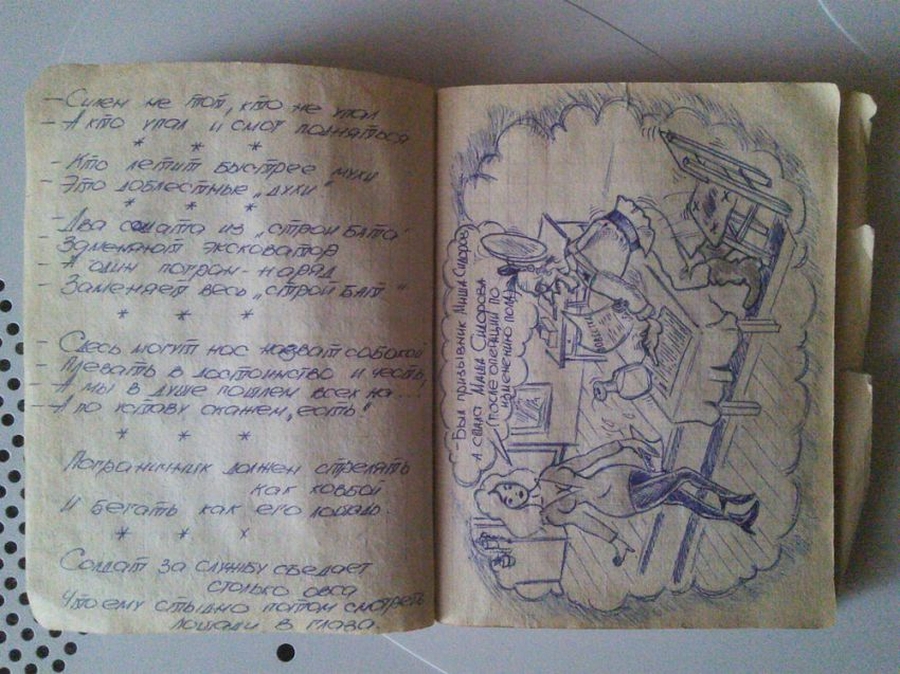 – Силен не тот, кто не упал
– А кто упал и смог подняться
* * *
– Кто летит быстрее мухи
– Это доблестные „духи“
* * *
– Два солдата из „строй бата“
– Заменяют эксковатор
– А один погран-наряд
– Заменяет весь „строй бат“
* * *
– Сдесь могут нас назват собакой
– Плевать в достоинство и честь,
– А мы в душе пошлем всех на...
– А по уставу скажем „есть“
* * *
Пограничник должен стрелять
как ковбой
И бегать как его лошадь.
* * *
Солдат за службу съедает
столько овса
Что ему стыдно потом смотреть
лошади в глаза.
– Был призывник Миша Сидоров,
а стала Маша Сидорова
(после операции по
изменению пола)